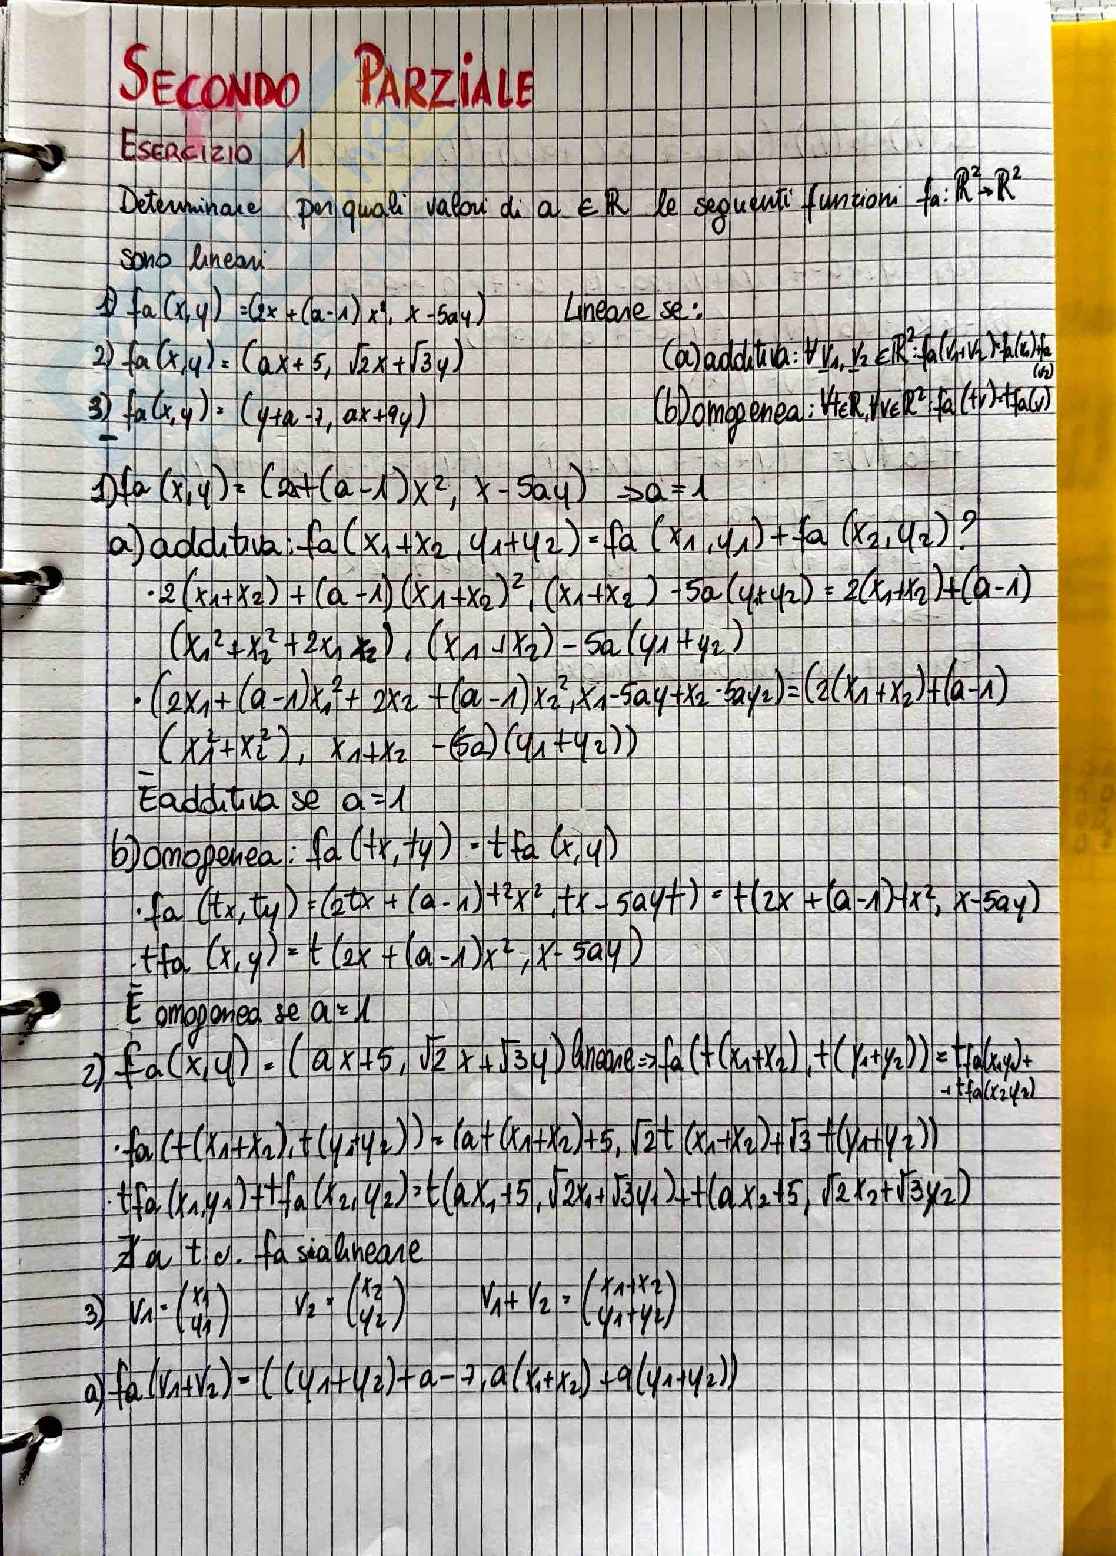 SECONDO PARZIALE
ESERCIZIO 1
Determinare per quali valori di a ∈ ℝ le seguenti funzioni fa: ℝ²→ℝ²
sono lineari
1) fa(x,y) = (2x+(a-1)x², x-5ay) Lineare se:
2) fa(x,y) = (ax+5, √2x+√3y) (a) additiva: ∀ v₁, v₂ ∈ ℝ²: fa(v₁+v₂)=fa(v₁)+fa
(v₂)
3) fa(x,y) = (y+a-7, ax+9y) (b) omogenea: ∀t∈ℝ, ∀v∈ℝ²: fa(tv)=tfa(v)
1) fa(x,y) = (2x+(a-1)x², x-5ay) ⇒ a=1
a) additiva: fa(x₁+x₂, y₁+y₂) = fa(x₁,y₁)+fa(x₂,y₂)?
·2(x₁+x₂)+(a-1)(x₁+x₂)², (x₁+x₂)-5a(y₁+y₂) = 2(x₁+x₂)+(a-1)
(x₁²+x₂²+2x₁x₂), (x₁+x₂)-5a(y₁+y₂)
·(2x₁+(a-1)x₁²+2x₂+(a-1)x₂², x₁-5ay+x₂-5ay₂)=(2(x₁+x₂)+(a-1)
(x₁²+x₂²), x₁+x₂-(5a)(y₁+y₂))
È additiva se a=1
b) omogenea: fa(tx,ty) = tfa(x,y)
·fa(tx,ty)=(2tx+(a-1)t²x², tx-5ayt) = t(2x+(a-1)tx², x-5ay)
·tfa(x,y) = t(2x+(a-1)x², x-5ay)
È omogenea se a=1
2) fa(x,y) = (ax+5, √2x+√3y) lineare ⇒ fa(t(x₁+x₂), t(y₁+y₂)) = tfa(x₁y₁)+
+tfa(x₂y₂)
·fa(t(x₁+x₂), t(y₁+y₂)) = (at(x₁+x₂)+5, √2t(x₁+x₂)+√3t(y₁+y₂))
·tfa(x₁,y₁)+tfa(x₂,y₂)=t(ax₁+5, √2x₁+√3y₁)+t(ax₂+5, √2x₂+√3y₂)
∄ a t.c. fa sia lineare
3) v₁=(x₁ y₁) v₂=(x₂ y₂) v₁+v₂=(x₁+x₂ y₁+y₂)
a) fa(v₁+v₂) = ((y₁+y₂)+a-7, a(x₁+x₂)+9(y₁+y₂))